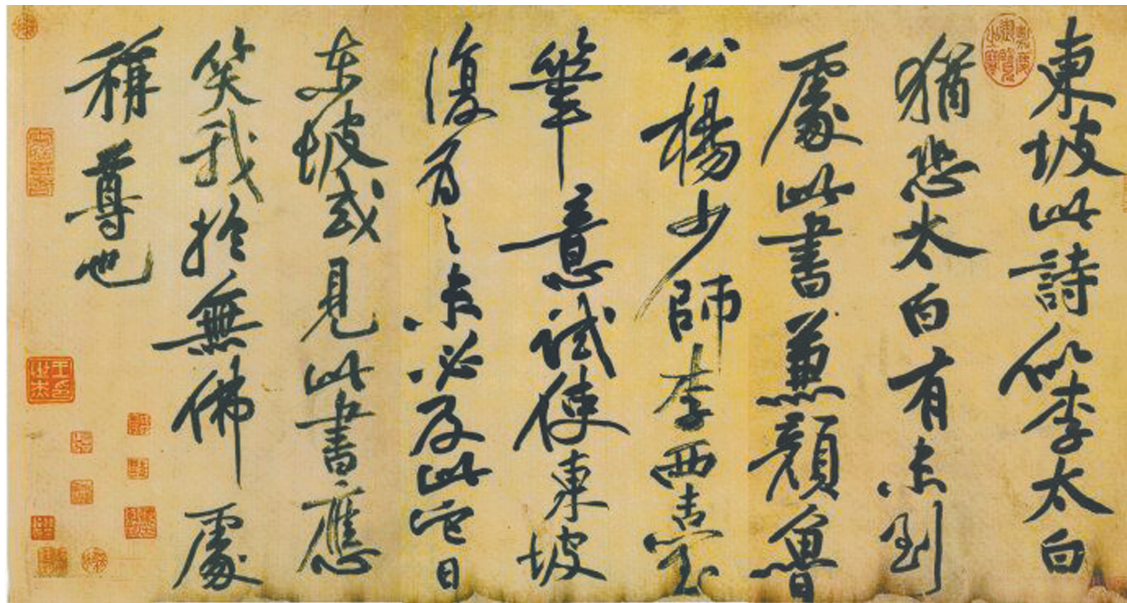 東坡此詩似李太白
猶恐太白有未到
處此書兼顔魯
公楊少師李西臺
筆意試使東坡
復為之未必及此它日
东坡或見此書應
笑我於無佛處
稱尊也